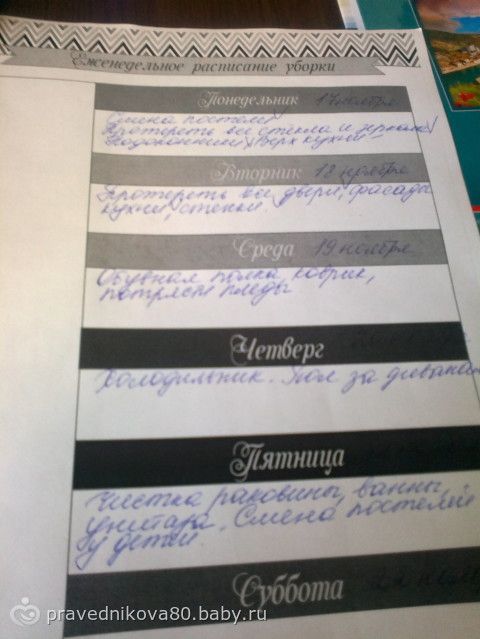 Еженедельное расписание уборки
Понедельник 17 ноября
Смена постели
Протереть все стекла и зеркала
Подоконники Верх кухни
Вторник 18 ноября
Протереть все двери, фасады
кухни, стенки.
Среда 19 ноября
Обувная полка, коврик,
потрясти пледы
Четверг
Холодильник. Пол за диваном
Пятница
Чистка раковины, ванны,
унитаза. Смена постелей
у детей.
Суббота 22
pravednikova80.baby.ru